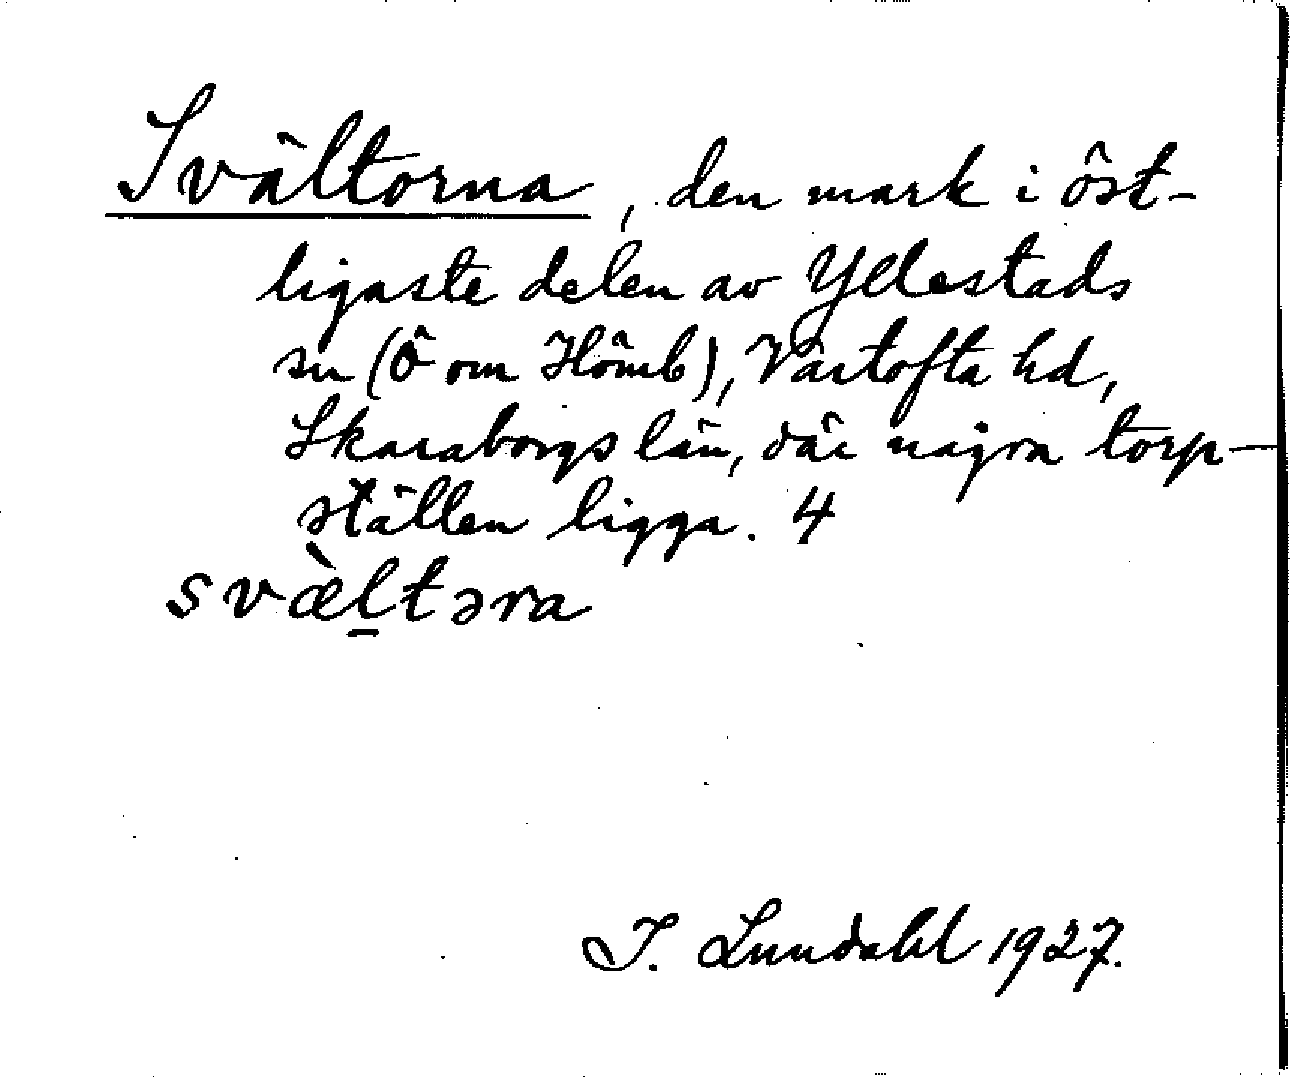 Svältorna, den mark i öst-
ligaste delen av Yllestads
sn (Ö om Hömb), Vartofta hd,
Skaraborgs län, där några torp-
ställen ligga. 4
svæ̀l̠təra
I. Lundahl 1927.